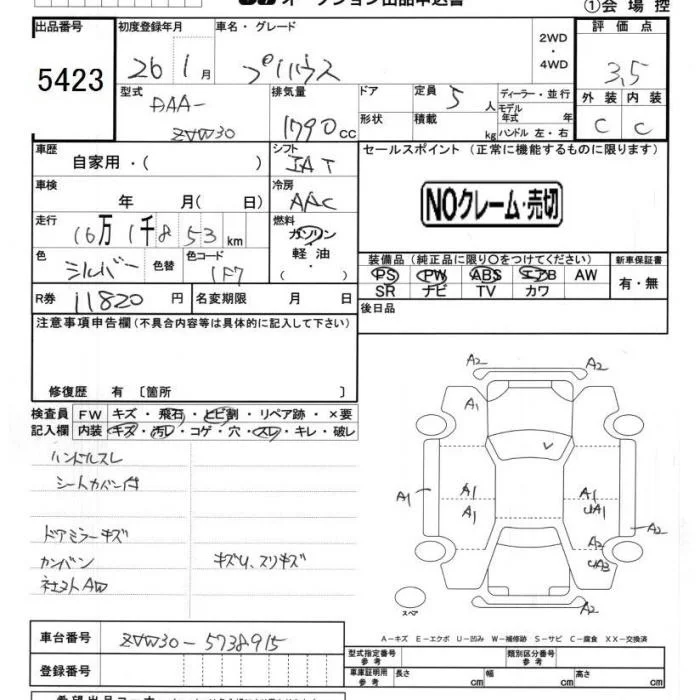 オークション出品申込書
①会場控
出品番号 初度登録年月 車名・グレード 2WD・4WD 評価点
5423 26 1月 プリウス 3.5
型式 DAA-ZVW30 排気量 1790cc ドア 定員 5人 ディーラー・並行 外装 内装
形状 積載 kg モデル年式 年 C C
ハンドル 左・右
車歴 自家用・( ) シフト IAT セールスポイント (正常に機能するものに限ります)
車検 年 月( 日) 冷房 AAC
NOクレーム・売切
走行 16万1千853km 燃料 ガソリン
軽油
・( )
色 シルバー 色替 色コード 1F7
装備品 (純正品に限り○をつけてください) 新車保証書
PS PW ABS エアB AW 有・無
SR ナビ TV カワ
R券 11820円 名変期限 月 日
後日品
注意事項申告欄(不具合内容等は具体的に記入して下さい)
修復歴 有 〔箇所 〕
検査員記入欄 FW キズ・飛石・ヒビ割・リペア跡・×要
内装 キズ・汚レ・コゲ・穴・スレ・キレ・破レ
ハンドルスレ
シートカバー付
ドアミラーキズ
カンバン キズU、スリキズ
社外AW
A2 A2
A1
A1 A1 A1 A1 UA1 A2
A2
UA3
スペア
A2
A-キズ E-エクボ U-凹み W-補修跡 S-サビ C-腐食 XX-交換済
車台番号 ZVW30-5738915
型式指定番号 参考 類別区分番号 参考
登録番号 車庫証明用 参考 長さ cm 幅 cm 高さ cm
希望出品コーナー